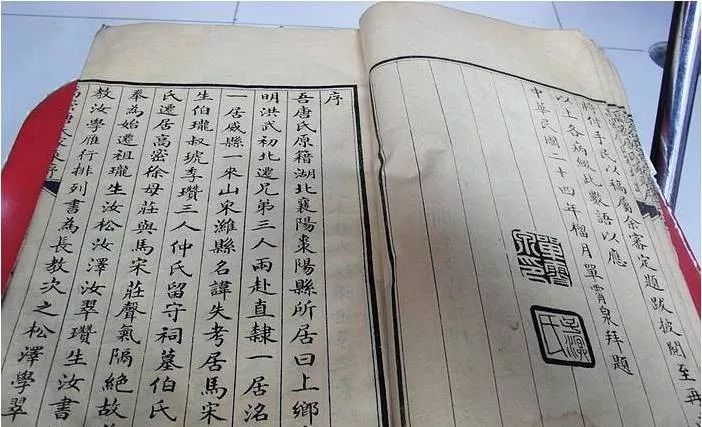 付手民以稿屬余審定題跋披閱至再
以上各病數語以應
中華民國二十四年榴月單霄泉拜題
序
吾唐氏原籍湖北襄陽棗陽縣所居曰上鄉
明洪武初北遷兄弟三人兩赴直隸一居洺
一居威縣一來山宋濰縣名諱失考居馬宋
生伯瓏叔琥季瓚三人仲氏留守祠墓伯氏
氏遷居高密徐母莊與馬宋莊聲氣隔絕故
奉為始遷祖瓏生汝松汝澤汝翠瓚生汝書
教汝學雁行排列書為長教次之松澤學翠